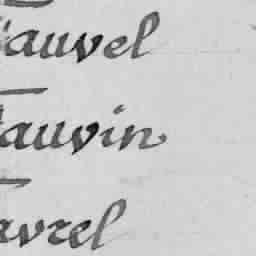 auvel
auvin
avrel